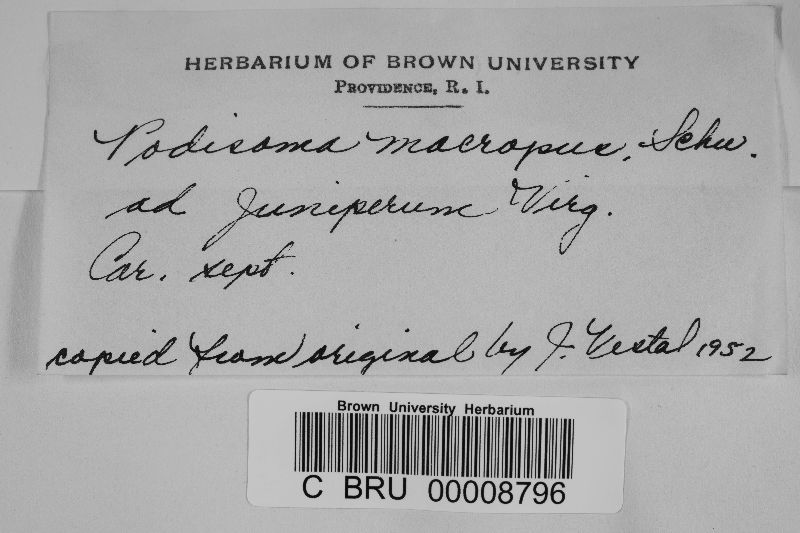 HERBARIUM OF BROWN UNIVERSITY
PROVIDENCE, R. I.
Podisoma macropus, Schw.
ad Juniperum Virg.
Car. sept.
copied from original by J. Vestal 1952
Brown University Herbarium
C BRU 00008796